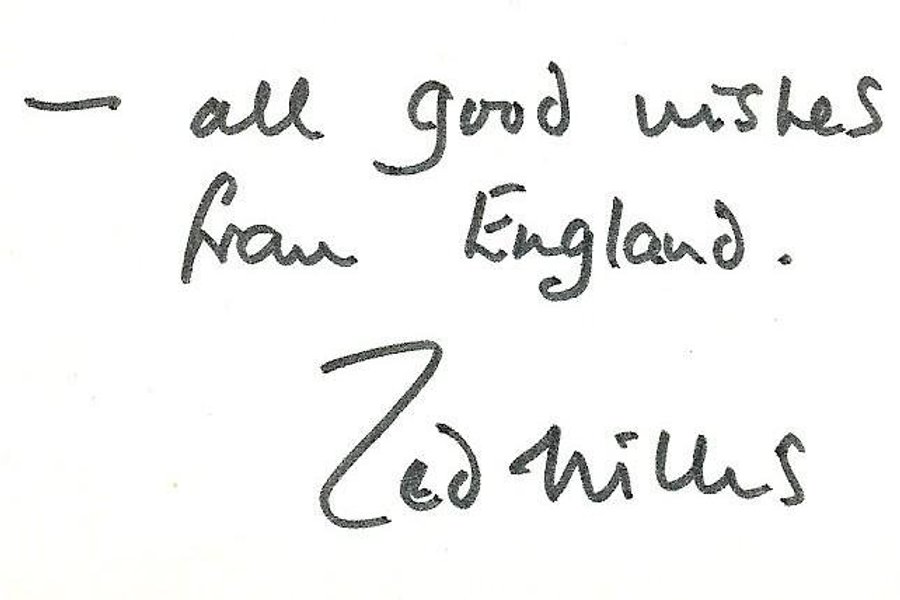 — all good wishes
from England.
Zed Nilles